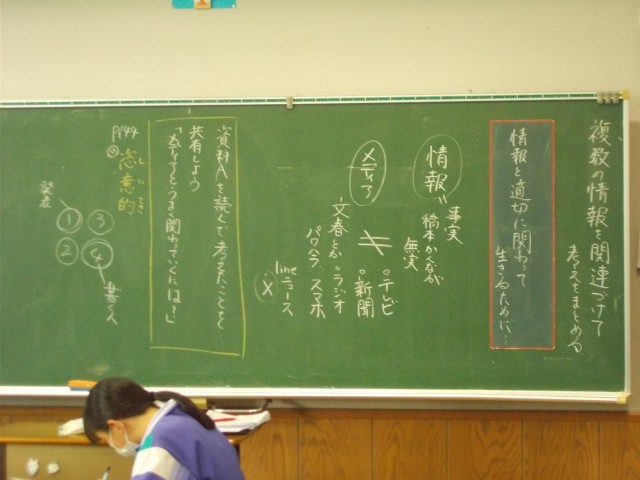 複数の情報を関連づけて
考えをまとめる
情報と適切に関わって
生きるために…
情報
事実
橋本かんなが
無実
メディア
・テビ
・新聞
・ラジオ
スマホ
文春とか
パワハラ
lineニュース
X
資料Aを読んで考えたことを
共有しよう
「メディアとうまく関わっていくには?」
P144
恣意的
しいてき
発表
① ③
② ④
書く人